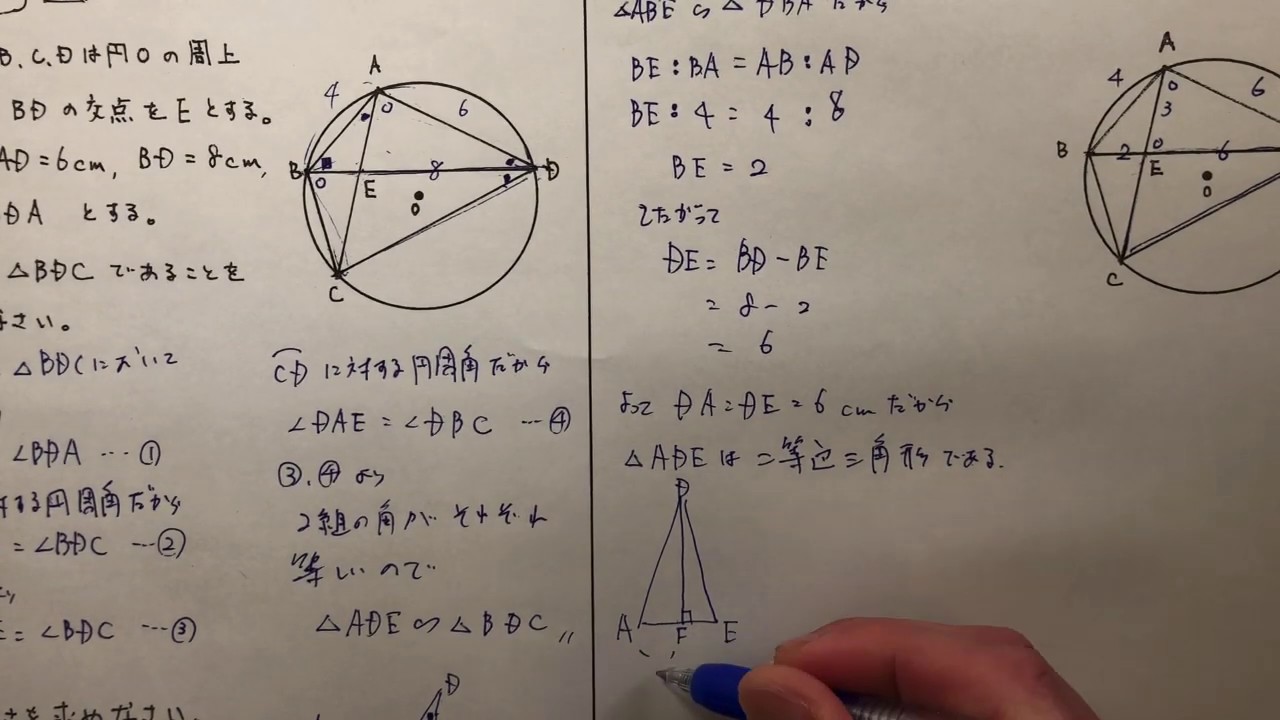 B.C.Dは円Oの周上
BDの交点をEとする。
AD=6cm, BD=8cm,
DA とする。
△BDCであることを
さい。
△BDCにおいて
∠BDA …①
する円周角だから
=∠BDC …②
=∠BDC …③
さを求めなさい。
A
4
6
B
E
8
D
O
C
CDに対する円周角だから
∠DAE=∠DBC …④
③.④より
2組の角がそれぞれ
等しいので
△ADE∽△BDC
D
△ABE∽△DBAだから
BE:BA=AB:AD
BE:4=4:8
BE=2
したがって
DE=BD-BE
=8-2
=6
よってDA=DE=6cmだから
△ADEは二等辺三角形である.
D
A
F
E
A
4
6
3
B
2
E
6
O
C